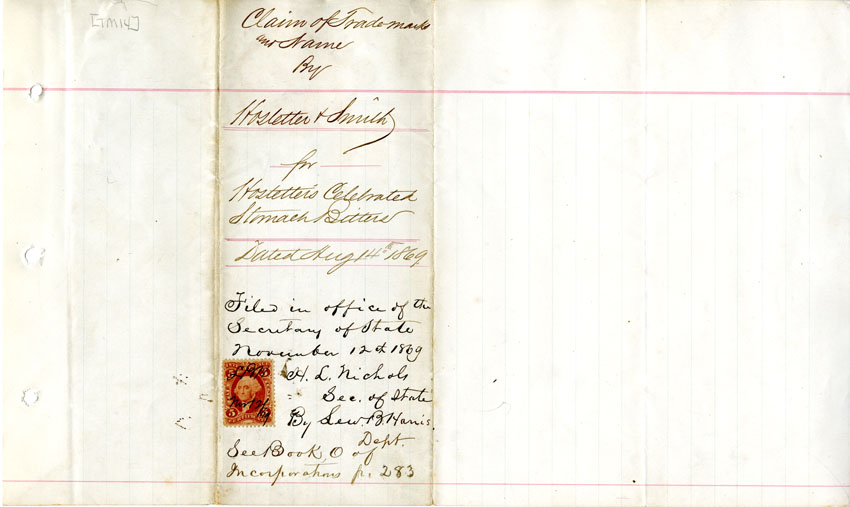 [TM14]
Claim of Trade marks
and Name
By
Hostetter & Smith
for
Hostetter's Celebrated
Stomach Bitters
Dated Aug 14th 1869
Filed in office of the
Secretary of State
November 12th 1869
H. L. Nichols
Sec. of State
By Lew. B. Harris.
Dept
See Book, O of
Incorporations p. 283
L B H
Nov 12/69
5 5